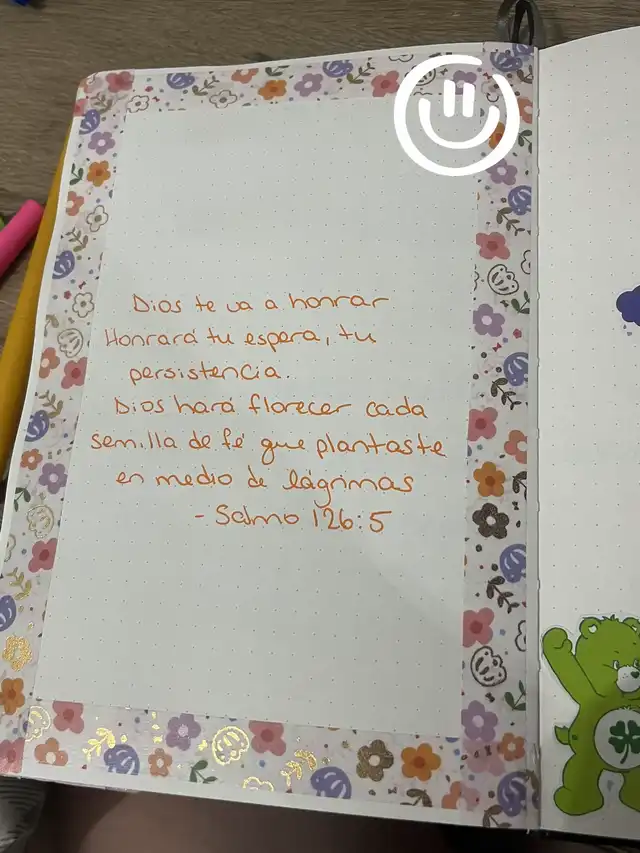 Dios te va a honrar
Honrará tu espera, tu
persistencia.
Dios hará florecer cada
semilla de fé que plantaste
en medio de lágrimas
- Salmo 126:5